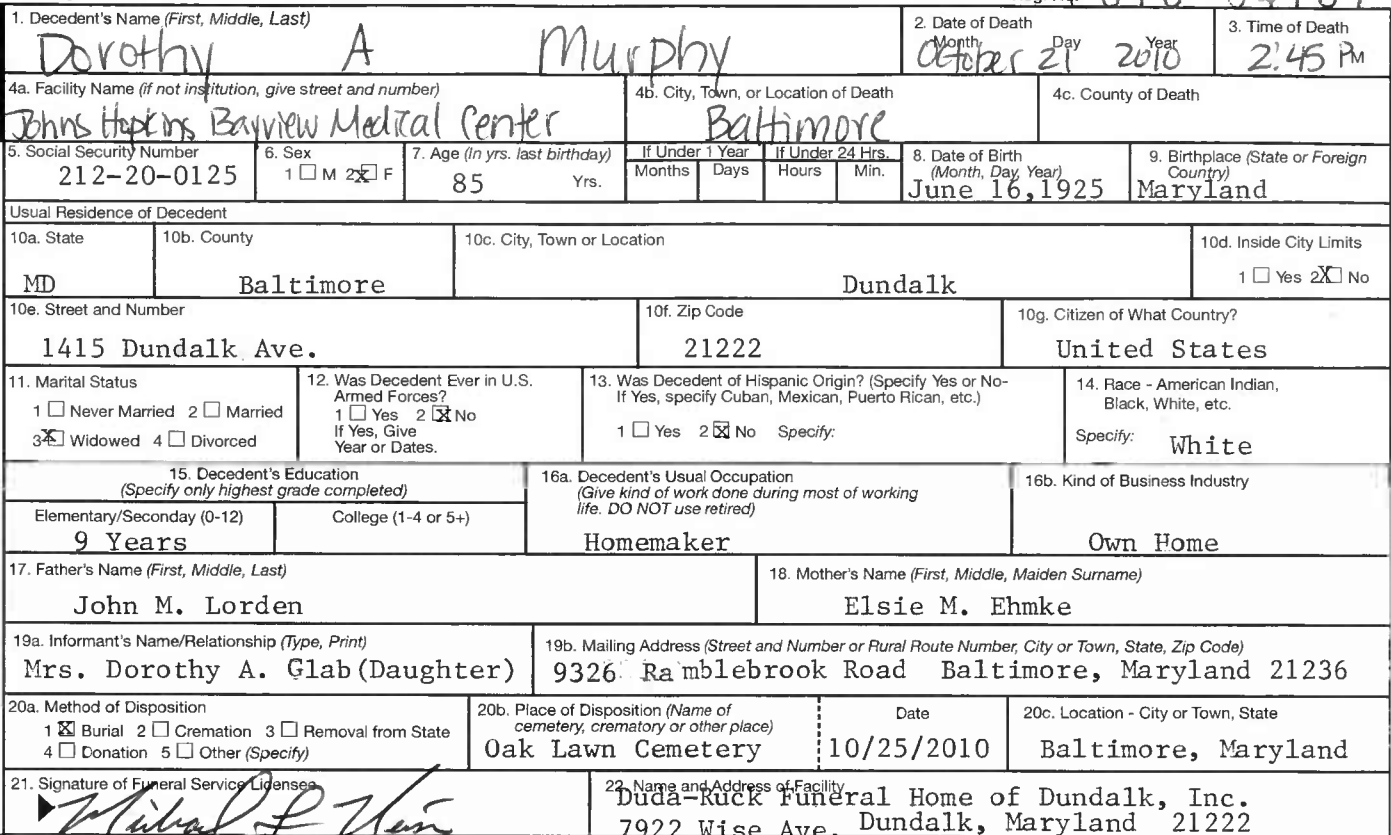 1. Decedent's Name (First, Middle, Last)
Dorothy A Murphy
2. Date of Death
Month Day Year
October 21 2010
3. Time of Death
2:45 PM
4a. Facility Name (if not institution, give street and number)
Johns Hopkins Bayview Medical Center
4b. City, Town, or Location of Death
Baltimore
4c. County of Death
5. Social Security Number
212-20-0125
6. Sex
1 ☐ M 2 ☒ F
7. Age (In yrs. last birthday)
85 Yrs.
If Under 1 Year
Months Days
If Under 24 Hrs.
Hours Min.
8. Date of Birth
(Month, Day, Year)
June 16,1925
9. Birthplace (State or Foreign
Country)
Maryland
Usual Residence of Decedent
10a. State
MD
10b. County
Baltimore
10c. City, Town or Location
Dundalk
10d. Inside City Limits
1 ☐ Yes 2 ☒ No
10e. Street and Number
1415 Dundalk Ave.
10f. Zip Code
21222
10g. Citizen of What Country?
United States
11. Marital Status
1 ☐ Never Married 2 ☐ Married
3 ☒ Widowed 4 ☐ Divorced
12. Was Decedent Ever in U.S.
Armed Forces?
1 ☐ Yes 2 ☒ No
If Yes, Give
Year or Dates.
13. Was Decedent of Hispanic Origin? (Specify Yes or No-
If Yes, specify Cuban, Mexican, Puerto Rican, etc.)
1 ☐ Yes 2 ☒ No Specify:
14. Race - American Indian,
Black, White, etc.
Specify: White
15. Decedent's Education
(Specify only highest grade completed)
Elementary/Seconday (0-12) College (1-4 or 5+)
9 Years
16a. Decedent's Usual Occupation
(Give kind of work done during most of working
life. DO NOT use retired)
Homemaker
16b. Kind of Business Industry
Own Home
17. Father's Name (First, Middle, Last)
John M. Lorden
18. Mother's Name (First, Middle, Maiden Surname)
Elsie M. Ehmke
19a. Informant's Name/Relationship (Type, Print)
Mrs. Dorothy A. Glab(Daughter)
19b. Mailing Address (Street and Number or Rural Route Number, City or Town, State, Zip Code)
9326 Ramblebrook Road Baltimore, Maryland 21236
20a. Method of Disposition
1 ☒ Burial 2 ☐ Cremation 3 ☐ Removal from State
4 ☐ Donation 5 ☐ Other (Specify)
20b. Place of Disposition (Name of
cemetery, crematory or other place)
Oak Lawn Cemetery
Date
10/25/2010
20c. Location - City or Town, State
Baltimore, Maryland
21. Signature of Funeral Service Licensee
22. Name and Address of Facility
Duda-Ruck Funeral Home of Dundalk, Inc.
7922 Wise Ave. Dundalk, Maryland 21222